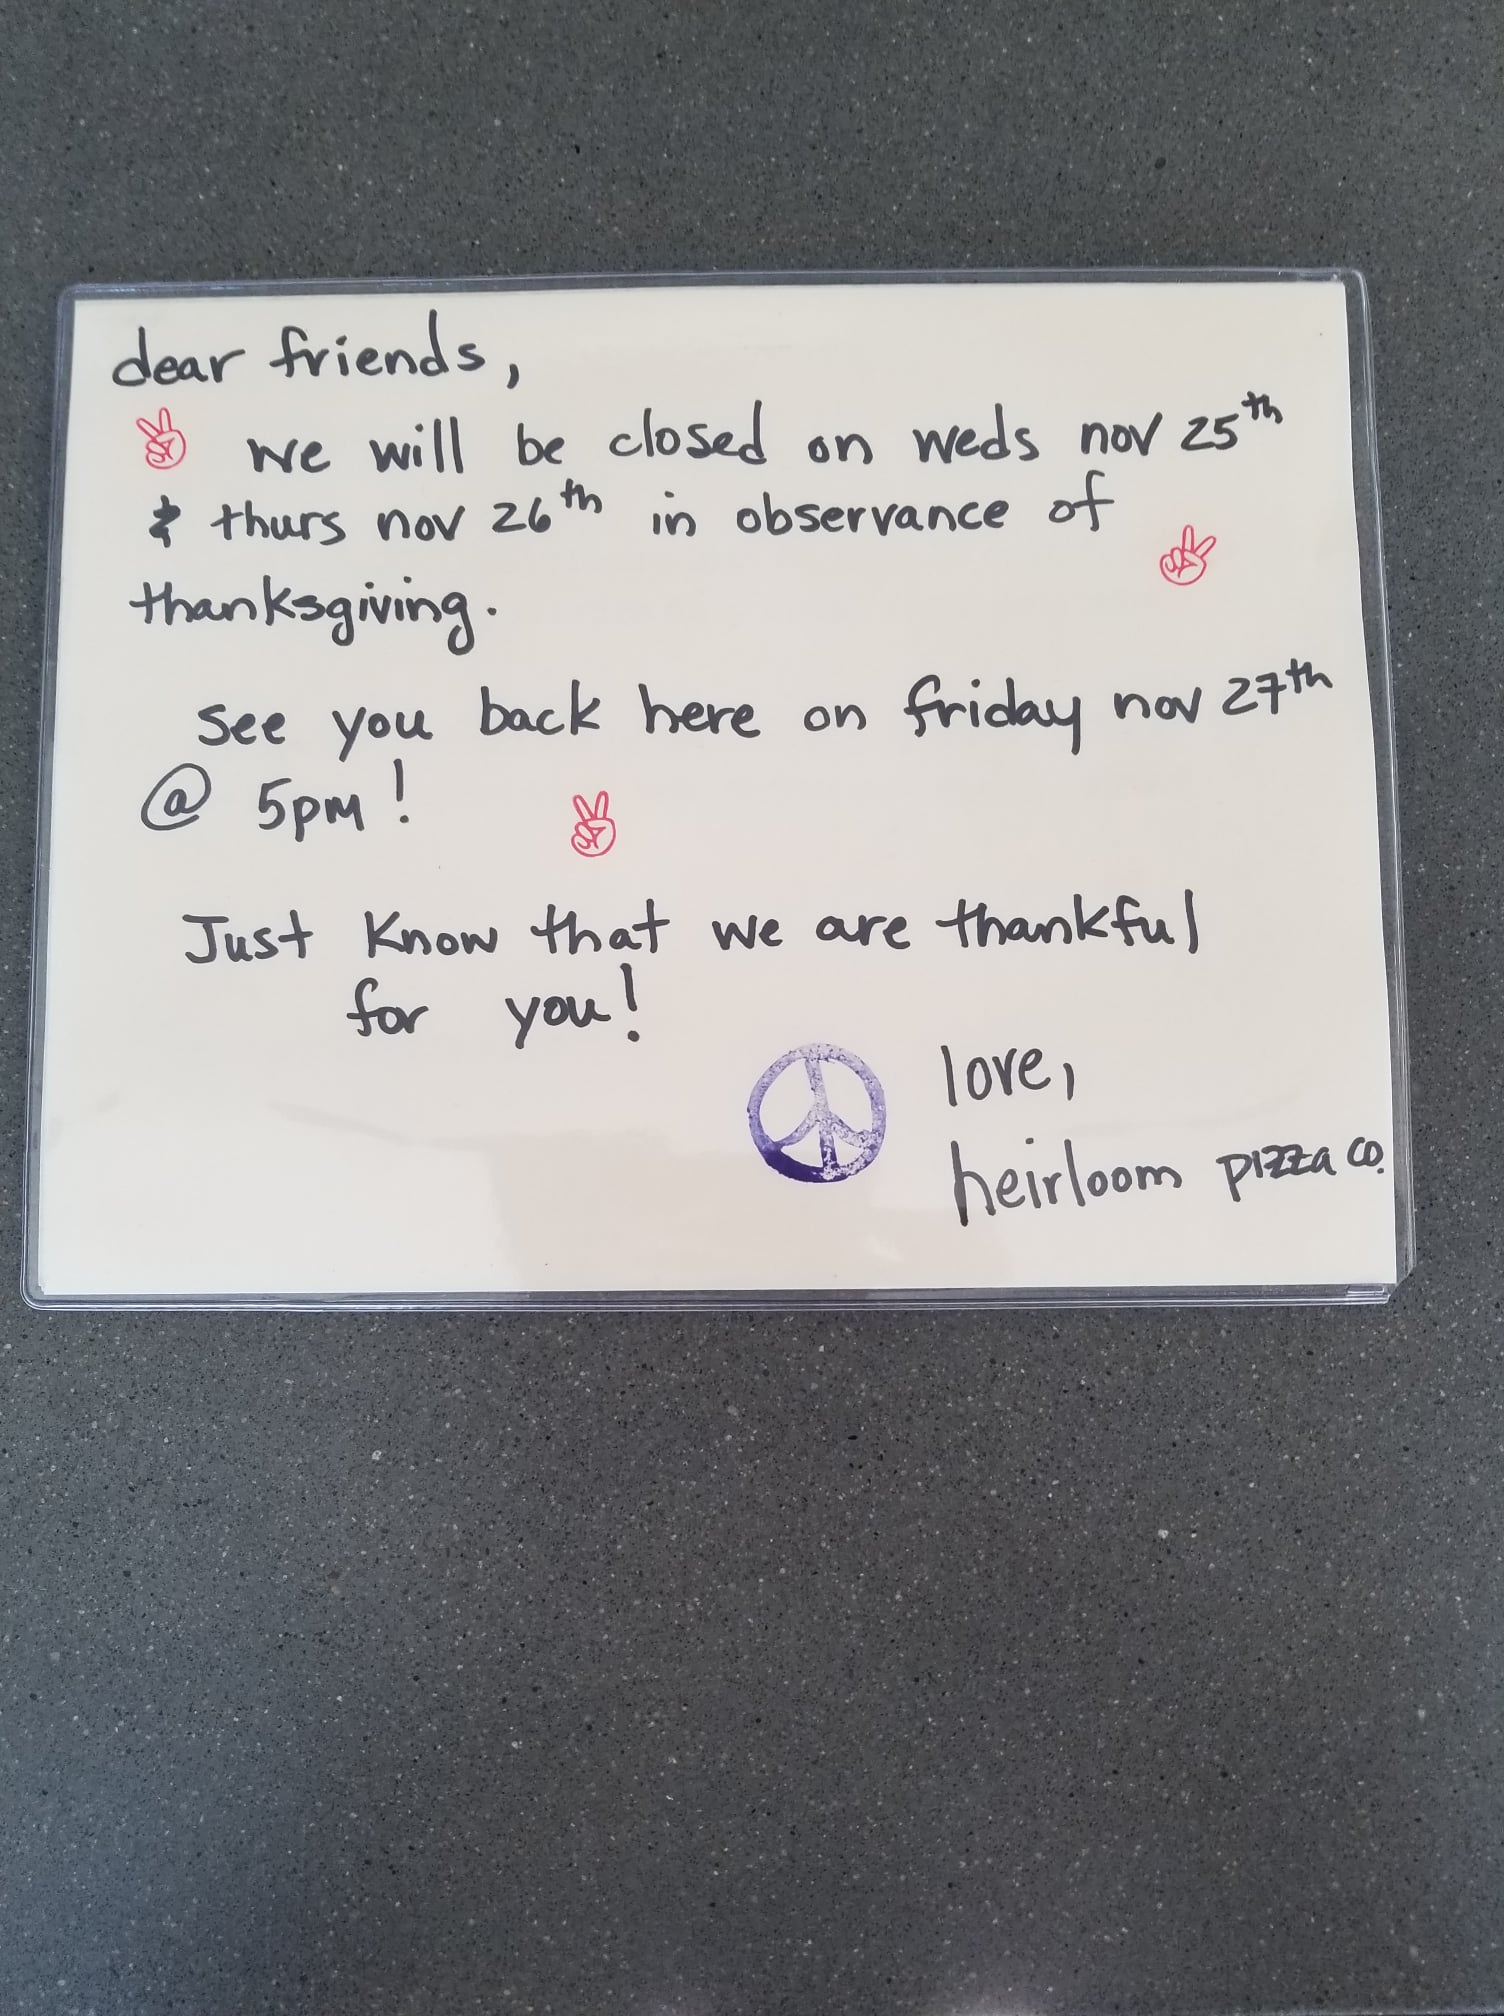 dear friends,
we will be closed on weds nov 25th
& thurs nov 26th in observance of
thanksgiving.
see you back here on friday nov 27th
@ 5pm!
Just know that we are thankful
for you!
love,
heirloom pizza co.